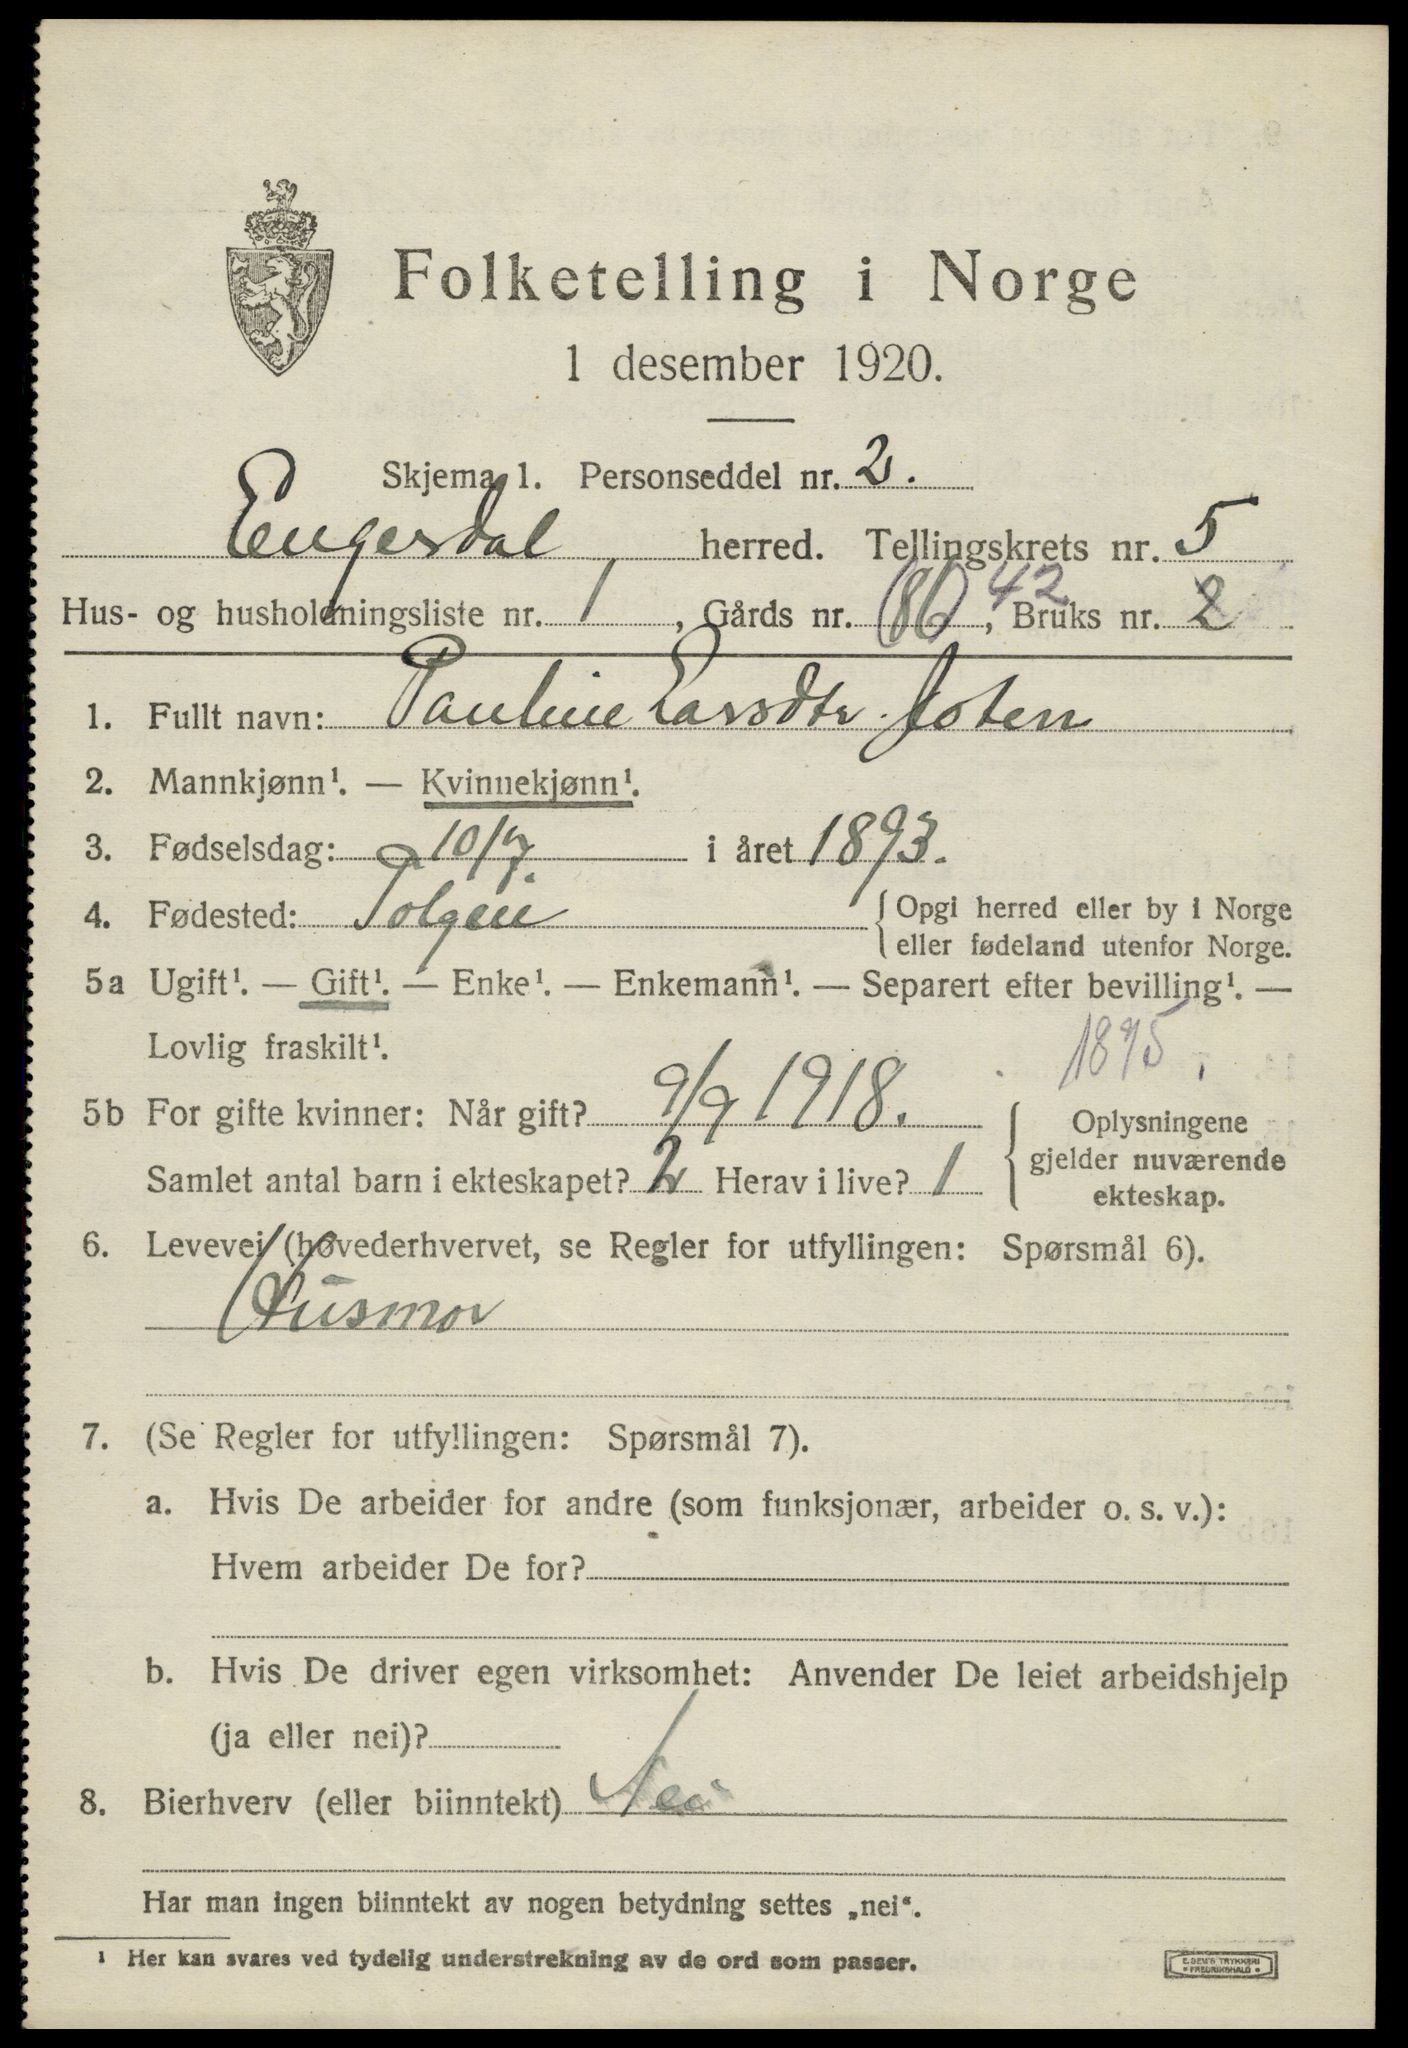 Folketelling i Norge
1 desember 1920.
Skjema 1. Personseddel nr. 2.
Engerdal herred. Tellingskrets nr. 5
Hus- og husholdningsliste nr. 1, Gårds nr. (86) 42, Bruks nr. 2
1. Fullt navn: Pauline Larsdtr. Joten
2. Mannkjønn¹. — Kvinnekjønn¹.
3. Fødselsdag: 10/7. i året 1893.
4. Fødested: Tolgen { Opgi herred eller by i Norge
eller fødeland utenfor Norge.
5a Ugift¹. — Gift¹. — Enke¹. — Enkemann¹. — Separert efter bevilling¹. —
Lovlig fraskilt¹.
1895
5b For gifte kvinner: Når gift? 9/9 1918. { Oplysningene
gjelder nuværende
ekteskap.
Samlet antal barn i ekteskapet? 2 Herav i live? 1
6. Levevei (hovederhvervet, se Regler for utfyllingen: Spørsmål 6).
Husmor
7. (Se Regler for utfyllingen: Spørsmål 7).
a. Hvis De arbeider for andre (som funksjonær, arbeider o. s. v.):
Hvem arbeider De for?
b. Hvis De driver egen virksomhet: Anvender De leiet arbeidshjelp
(ja eller nei)?
8. Bierhverv (eller biinntekt) Nei
Har man ingen biinntekt av nogen betydning settes „nei“.
¹ Her kan svares ved tydelig understrekning av de ord som passer.
E. SEM'S TRYKKERI
FREDRIKSHALD